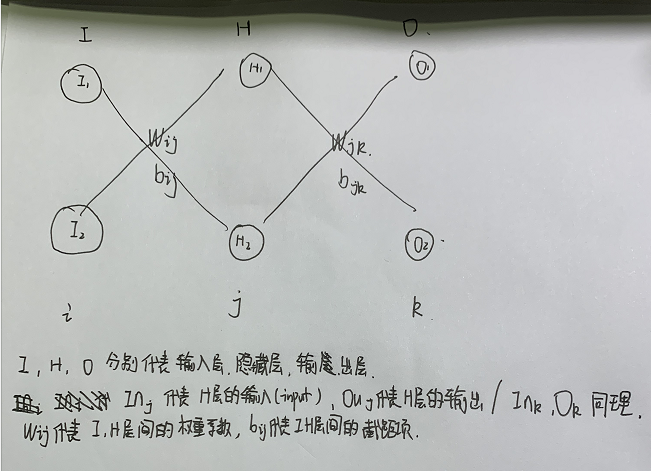 I H O.
I₁ H₁ O₁
Wij Wjk.
bij bjk
I₂ H₂ O₂
i j k.
I, H, O 分别代表输入层.隐藏层,输出层.
Inj 代表 H层的输入(input), Ouj代表H层的输出 / Ink, Ok 同理.
Wij代表 I,H层间的权重系数, bij代表IH层间的截距项.